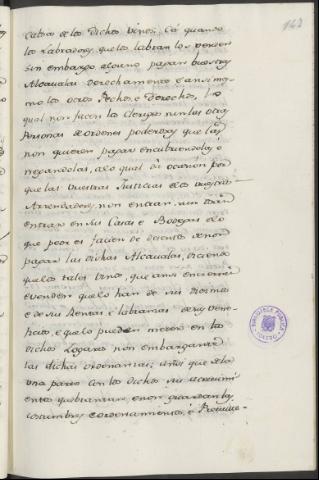 143
cabsa de los dichos vinos; Cá quando
los Labradores, que los labran los venden
sin embargo alguno pagan vuestras
Alcavalas derechamente e ansimis-
mo los otros Pechos, e Derechos, lo
qual non facen los Clerigos nin las otras
Personas de ordenes poderosas que las
non quieren pagar encubriendolas, ó
negandolas, a lo qual dá ocasion por
que las vuestras Justicias e los vuestros
Arrendadores, non entran, nin osan
entrar en sus Casas e Bodegas e lo
que peor es facien de desento de non
pagar las dichas Alcavalas, diciendo
que los tales vinos, que ansi encierran
e venden que lo han de sus Diezmos
e de sus Rentas e labranzas de sus Bene-
ficios, e que lo pueden meter en los
dichos Logares non embargante
las dichas ordenanzas; ansi que de lo
una parte con los dichos sus
quebrantan, e non guardan las
costumbres e ordenamientos, é Previle-
BIBLIOTECA PUBLICA
TOLEDO